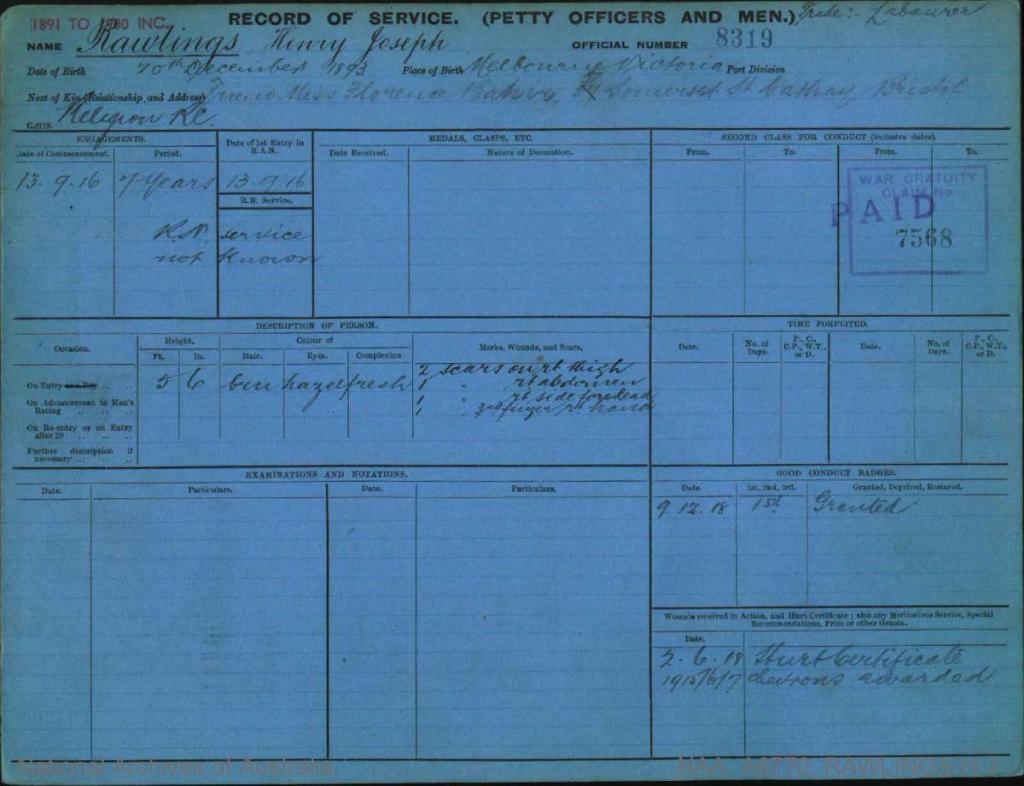 1891 TO 1900 INC.
RECORD OF SERVICE. (PETTY OFFICERS AND MEN.) Trade:- Labourer
NAME Rawlings Henry Joseph OFFICIAL NUMBER 8319
Date of Birth 20th December 1893 Place of Birth Melbourne Victoria Port Division
Next of Kin, Relationship, and Address Friend Miss Florence Somerset St Cathay Bristol
Religion RC.
ENGAGEMENTS.
Date of Commencement. Period.
Date of 1st Entry in R.A.N.
13.9.16 7 years 13.9.16
R.N. Service.
R.N. service
not known
MEDALS, CLASPS, ETC.
Date Received. Nature of Decoration.
SECOND CLASS FOR CONDUCT (Inclusive dates).
From. To. From. To.
WAR GRATUITY
CLAIM No
PAID
7568
DESCRIPTION OF PERSON.
Occasion. Height. Colour of Marks, Wounds, and Scars.
Ft. In. Hair. Eyes. Complexion.
On Entry as a Boy .. .. 5 6 brn hazel fresh 2 scars on rt thigh
1 " rt abdomen
On Advancement to Man's Rating .. .. .. 1 " rt side forehead
1 " 3rd finger rt hand
On Re-entry or on Entry after 28 .. .. ..
Further description if necessary .. .. ..
TIME FORFEITED.
Date. No. of Days. P., C., C.P., W.T., or D. Date. No. of Days. P., C., C.P., W.T., or D.
EXAMINATIONS AND NOTATIONS.
Date. Particulars. Date. Particulars.
GOOD CONDUCT BADGES.
Date. 1st, 2nd, 3rd. Granted, Deprived, Restored.
9.12.18 1st Granted
Wounds received in Action, and Hurt Certificate; also any Meritorious Service, Special
Recommendations, Prize or other Grants.
Date.
2.6.18 Hurt Certificate
1915/6/7 Chevrons awarded
National Archives of Australia
NAA: A6770, RAWLINGS H J